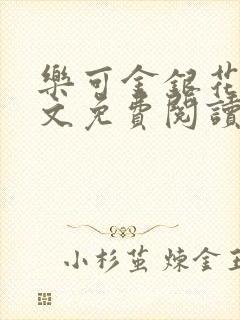 樂可金銀花
文免費閱讀
小杉茧煉金王